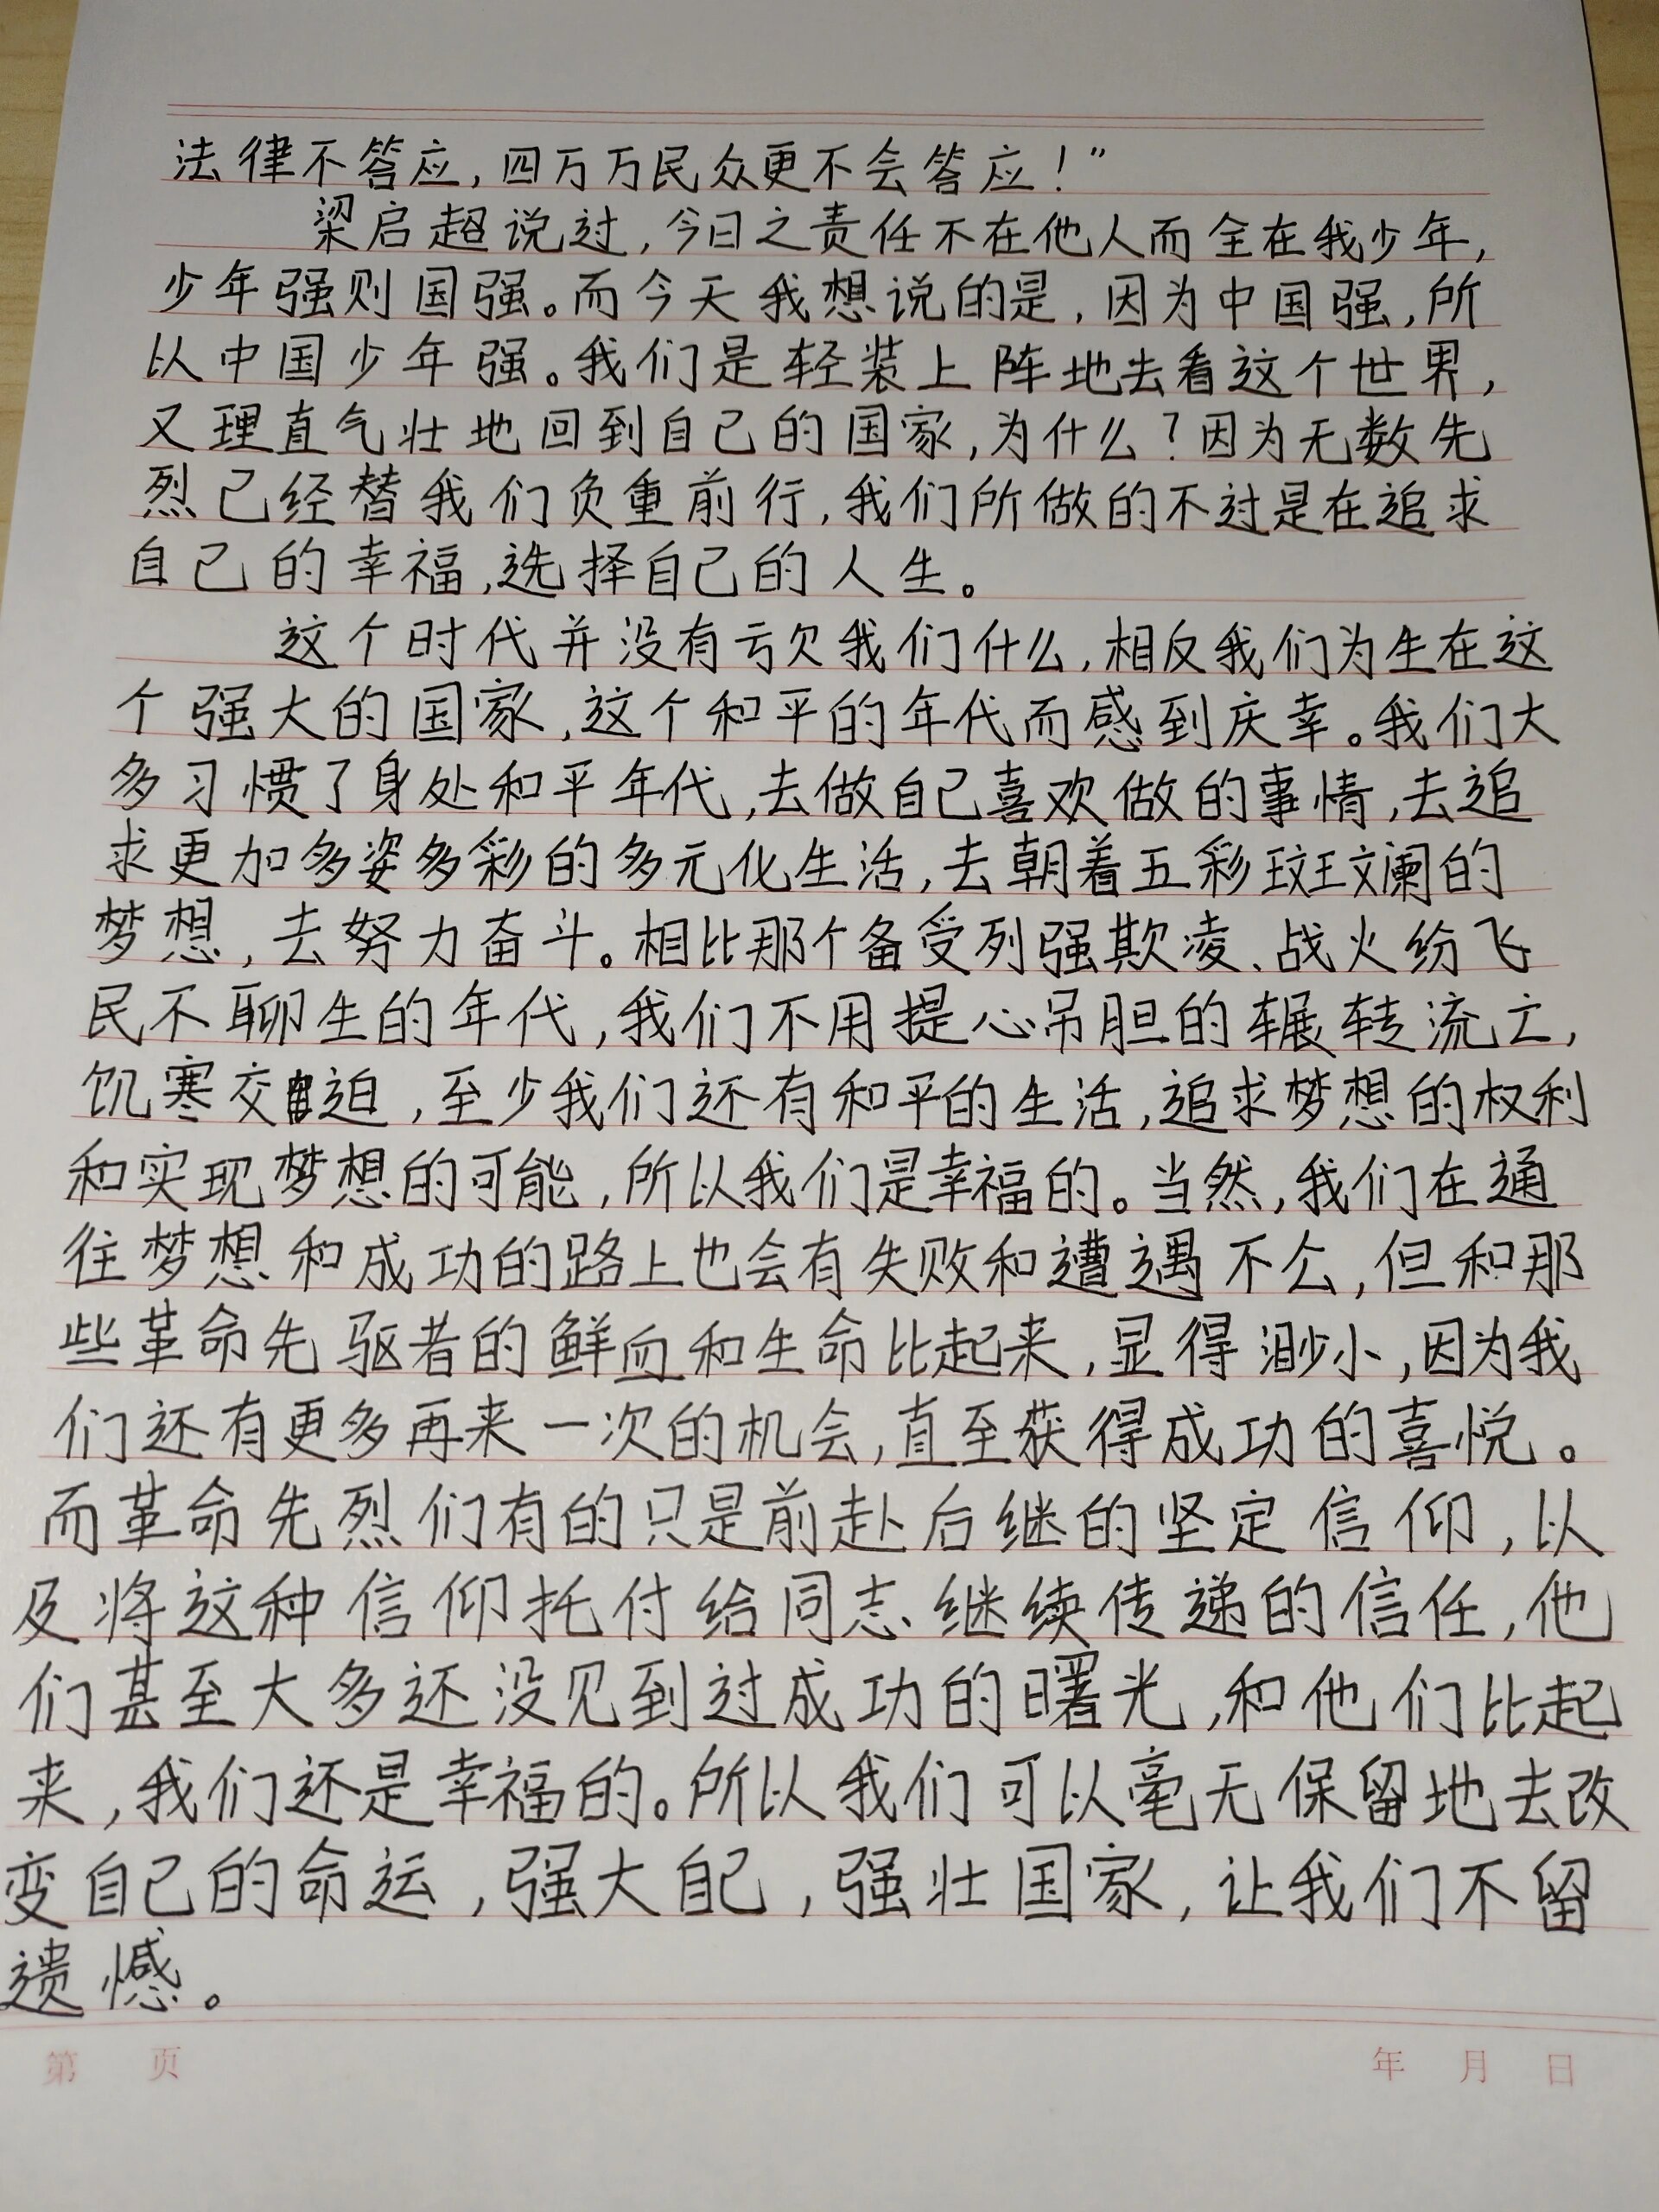 法律不答应，四万万民众更不会答应！”
梁启超说过，今日之责任不在他人而全在我少年，
少年强则国强。而今天我想说的是，因为中国强，所
以中国少年强。我们是轻装上阵地去看这个世界，
又理直气壮地回到自己的国家，为什么？因为无数先
烈已经替我们负重前行，我们所做的不过是在追求
自己的幸福，选择自己的人生。
这个时代并没有亏欠我们什么，相反我们为生在这
个强大的国家，这个和平的年代而感到庆幸。我们大
多习惯了身处和平年代，去做自己喜欢做的事情，去追
求更加多姿多彩的多元化生活，去朝着五彩斑斓的
梦想，去努力奋斗。相比那个备受列强欺凌、战火纷飞
民不聊生的年代，我们不用提心吊胆的辗转流亡，
饥寒交迫，至少我们还有和平的生活，追求梦想的权利
和实现梦想的可能，所以我们是幸福的。当然，我们在通
往梦想和成功的路上也会有失败和遭遇不公，但和那
些革命先驱者的鲜血和生命比起来，显得渺小，因为我
们还有更多再来一次的机会，直至获得成功的喜悦。
而革命先烈们有的只是前赴后继的坚定信仰，以
及将这种信仰托付给同志继续传递的信任，他
们甚至大多还没见到过成功的曙光，和他们比起
来，我们还是幸福的。所以我们可以毫无保留地去改
变自己的命运，强大自己，强壮国家，让我们不留
遗憾。
第 页 年 月 日